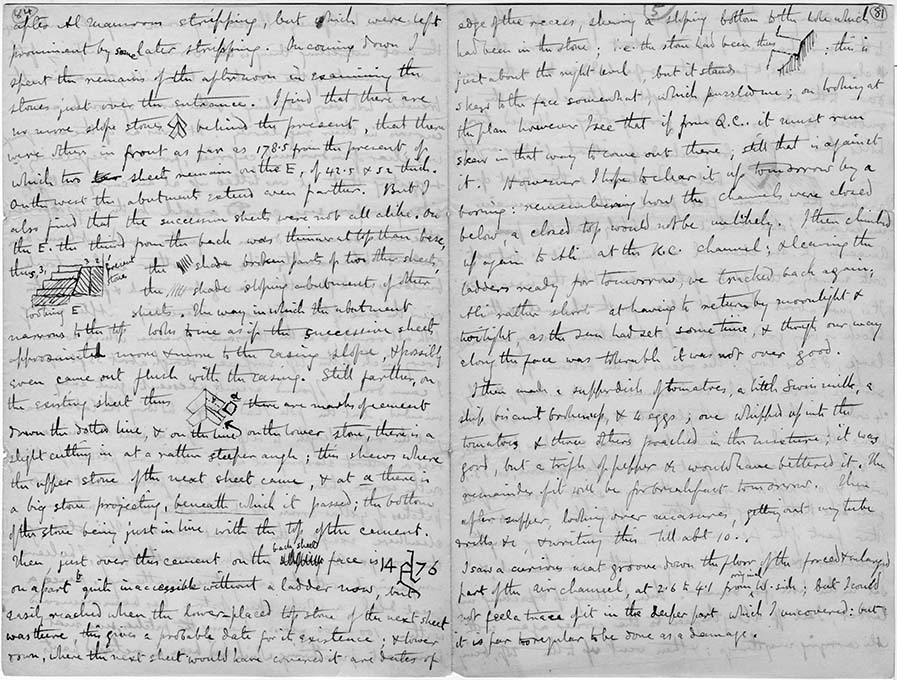 84
after Al Mamoon stripping, but which were left
prominent by some later stripping. On coming down I
spent the remains of the afternoon in examining the
stones just over the entrance. I find that there are
no more slope stones behind the present, that there
were others in front as far as 178.5 from the present, of
which two sheets remain on the E, of 42.5 & 52 thick.
On the west the abutment extends even farther. But I
also find that the successive sheets were not all alike. On
the E. the third from the back was thinner at top than base,
thus 5, 3, 3 2 1 present stone the shade broken parts of two other sheets,
the shade sloping abutments of other
looking E sheets. The way in which the abutment
narrows to the top looks to me as if the successive sheets
approximated more & more to the casing slope, & possibly
even came out flush with the casing. Still farther, on
the existing sheet thus a there are marks of cement
down the dotted line, & on the line on the lower stone, there is a
slight cutting in at a rather steeper angle; this shews where
the upper stone of the next sheet came, & at a there is
a big stone projecting, beneath which it passed; the bottom
of this stone being just in line with the top of the cement.
Then just over this cement on the back sheet face is 14 76
on a part quite inaccessible without a ladder now, but
easily reached when the lower placed top stone of the next sheet
was there, this gives a probable date for its existence; & lower
down, where the next sheet would have covered it are dates of
81
edge of the recess, shewing a sloping bottom to the hole which
had been in the stone; i.e. the stone had been thus . this is
just about the right level but it stands
skew to the face somewhat, which puzzled me; on looking at
the plan however I see that if from Q.C. it must run
skew in that way to come out there; still that is against
it. However I hope to clear it up tomorrow by a
boring: remembering how the channels were closed
below a closed top would not be unlikely. I then climbed
up again to Ali at the K.C. channel; & leaving the
ladders ready for tomorrow, we trucked back again;
Ali rather short at having to return by moonlight &
twilight, as the sun had set some time, & though our way
along the face was tolerable it was not over good.
I then made a supper dish of tomatoes, a little Swiss milk, a
ship biscuit broken up, & 4 eggs; one whipped up into the
tomatoes & three others poached in the mixture; it was
good, but a trifle of pepper &c would have bettered it. The
remainder of it will be for breakfast tomorrow. Then
after supper, looking over measures, getting out my tube
drills &c, & writing this till abt 10..
I saw a curious neat groove down the floor of the forced & enlarged
part of the air channel, at 2.6 to 4.1 from original W. side; but I could
not feel a trace of it in the deeper part which I uncovered: but
it is far too regular to be done as a damage.